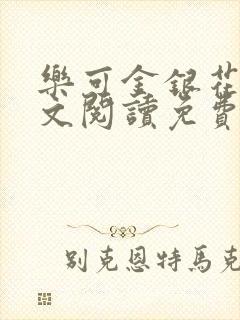 樂可金銀花
文閱讀免費
別克恩特馬克